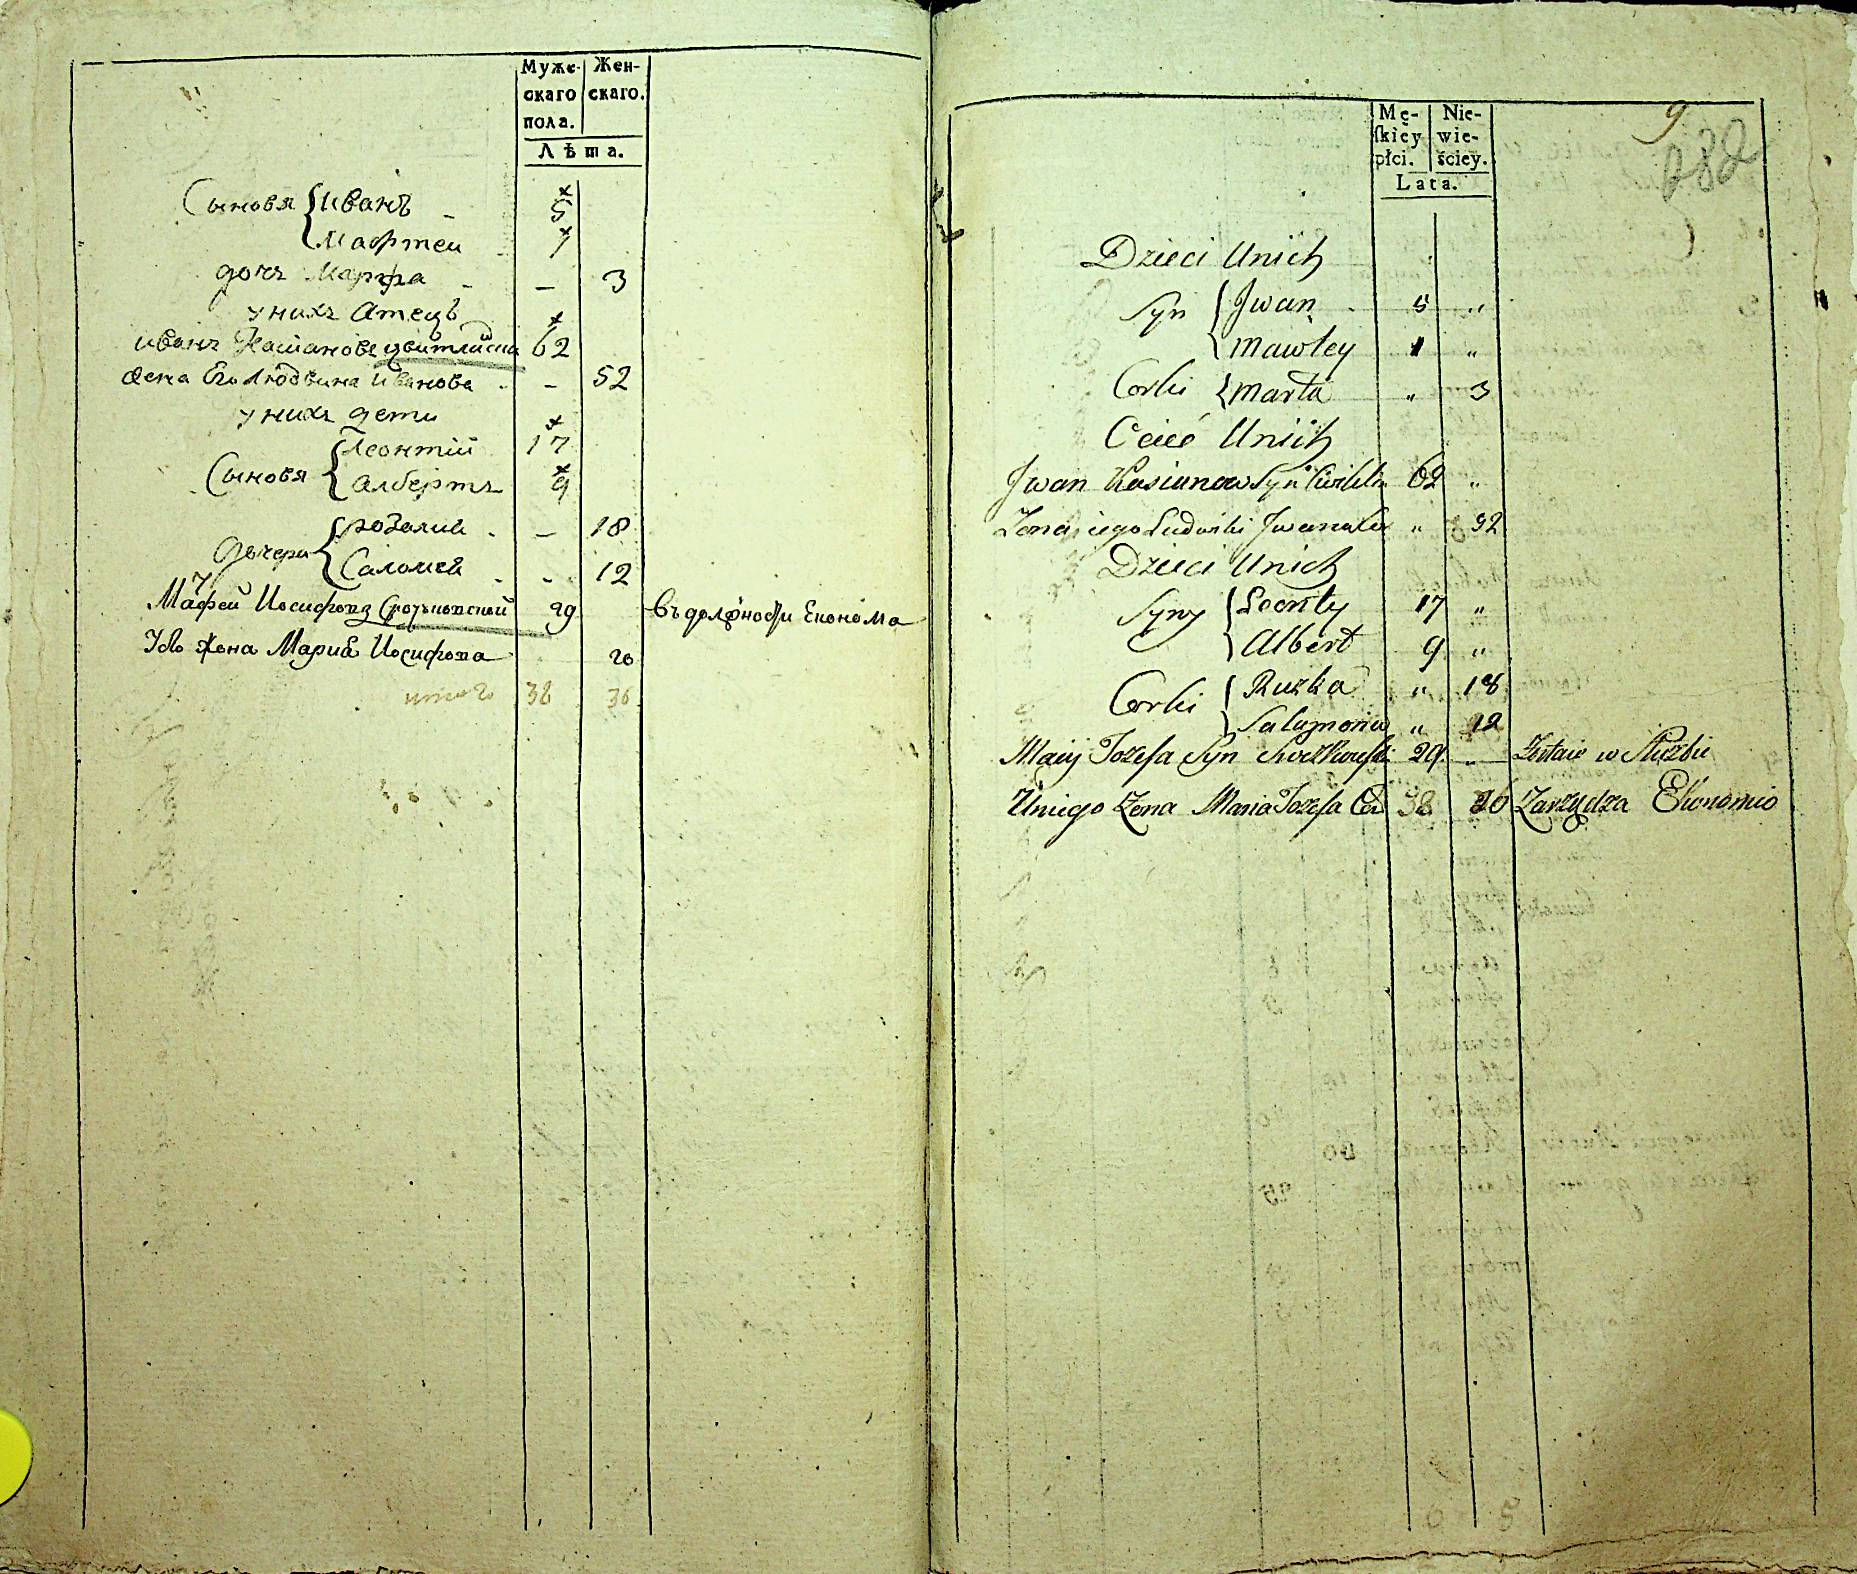 Муже- Жен-
скаго скаго.
пола.
Лѣта.
Сыновя { Иванъ - 5
Мафтеи - 7
дочъ Марфа - - 3
у нихъ атецъ
иванъ Касиановъ 62
жена Его Людвика Иванова - - 52
у нихъ дети
Сыновя { Леонтий 17
албертъ 9
дочери { розалия - - 18
Саломея - - 12
Мафей Иосифовъ 29 въ должности Економа
Жена Мария Иосифова 20
итого 38 36
9
282
Mę- Nie-
skiey wie-
płci. ściey.
Lata.
Dzieci Unich
Syn { Jwan - 5 "
Mawtey 1 "
Corki { Marta " 3
Ociec Unich
Jwan Kasianow Syn 62 "
Zona iego Ludwiki " 32
Dzieci Unich
Syny { Leonty 17 "
Albert 9 "
Corki { Ruzka " 18
Salamonia " 12
Maiy Jozefa Syn 29 " Zostaie w Służbie
Uniego Żona Maria Jozefa 38 36 Zarządza Ekonomio